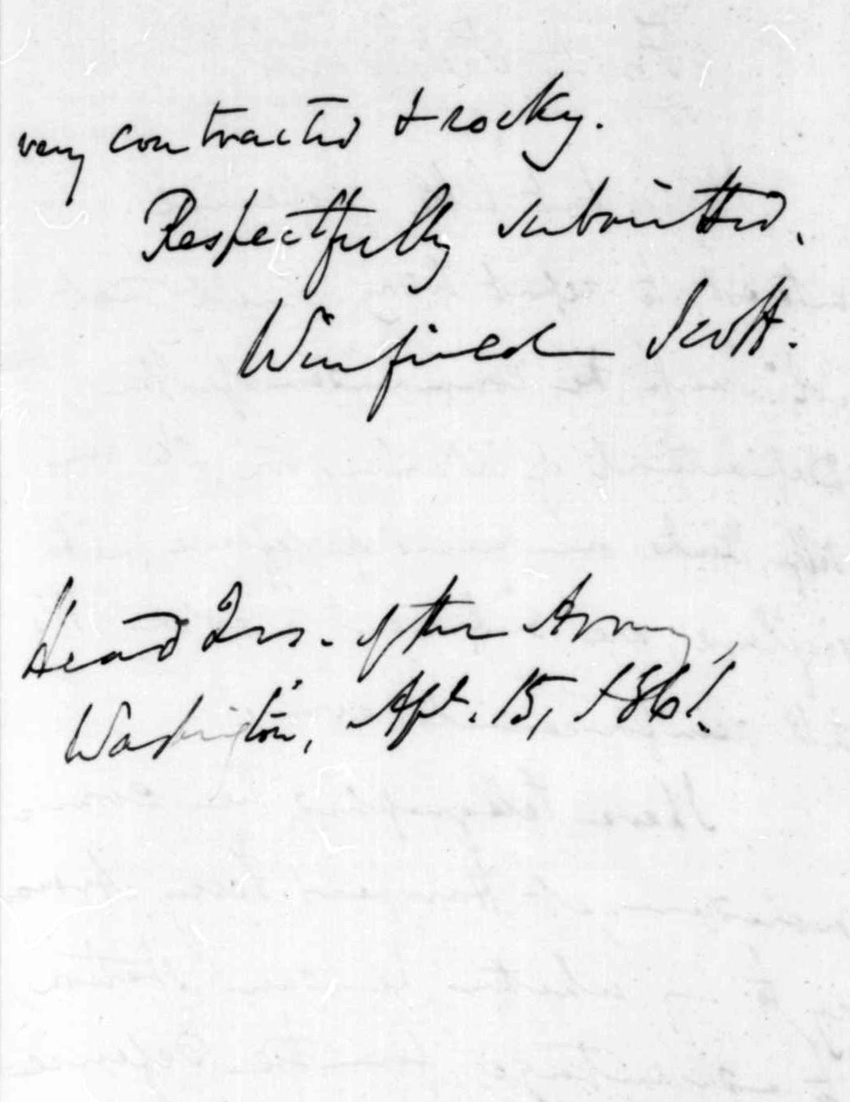 very contracted & rocky.
Respectfully submitted.
Winfield Scott.
Head Qrs. of the Army,
Washington, Apl. 15, 1861.